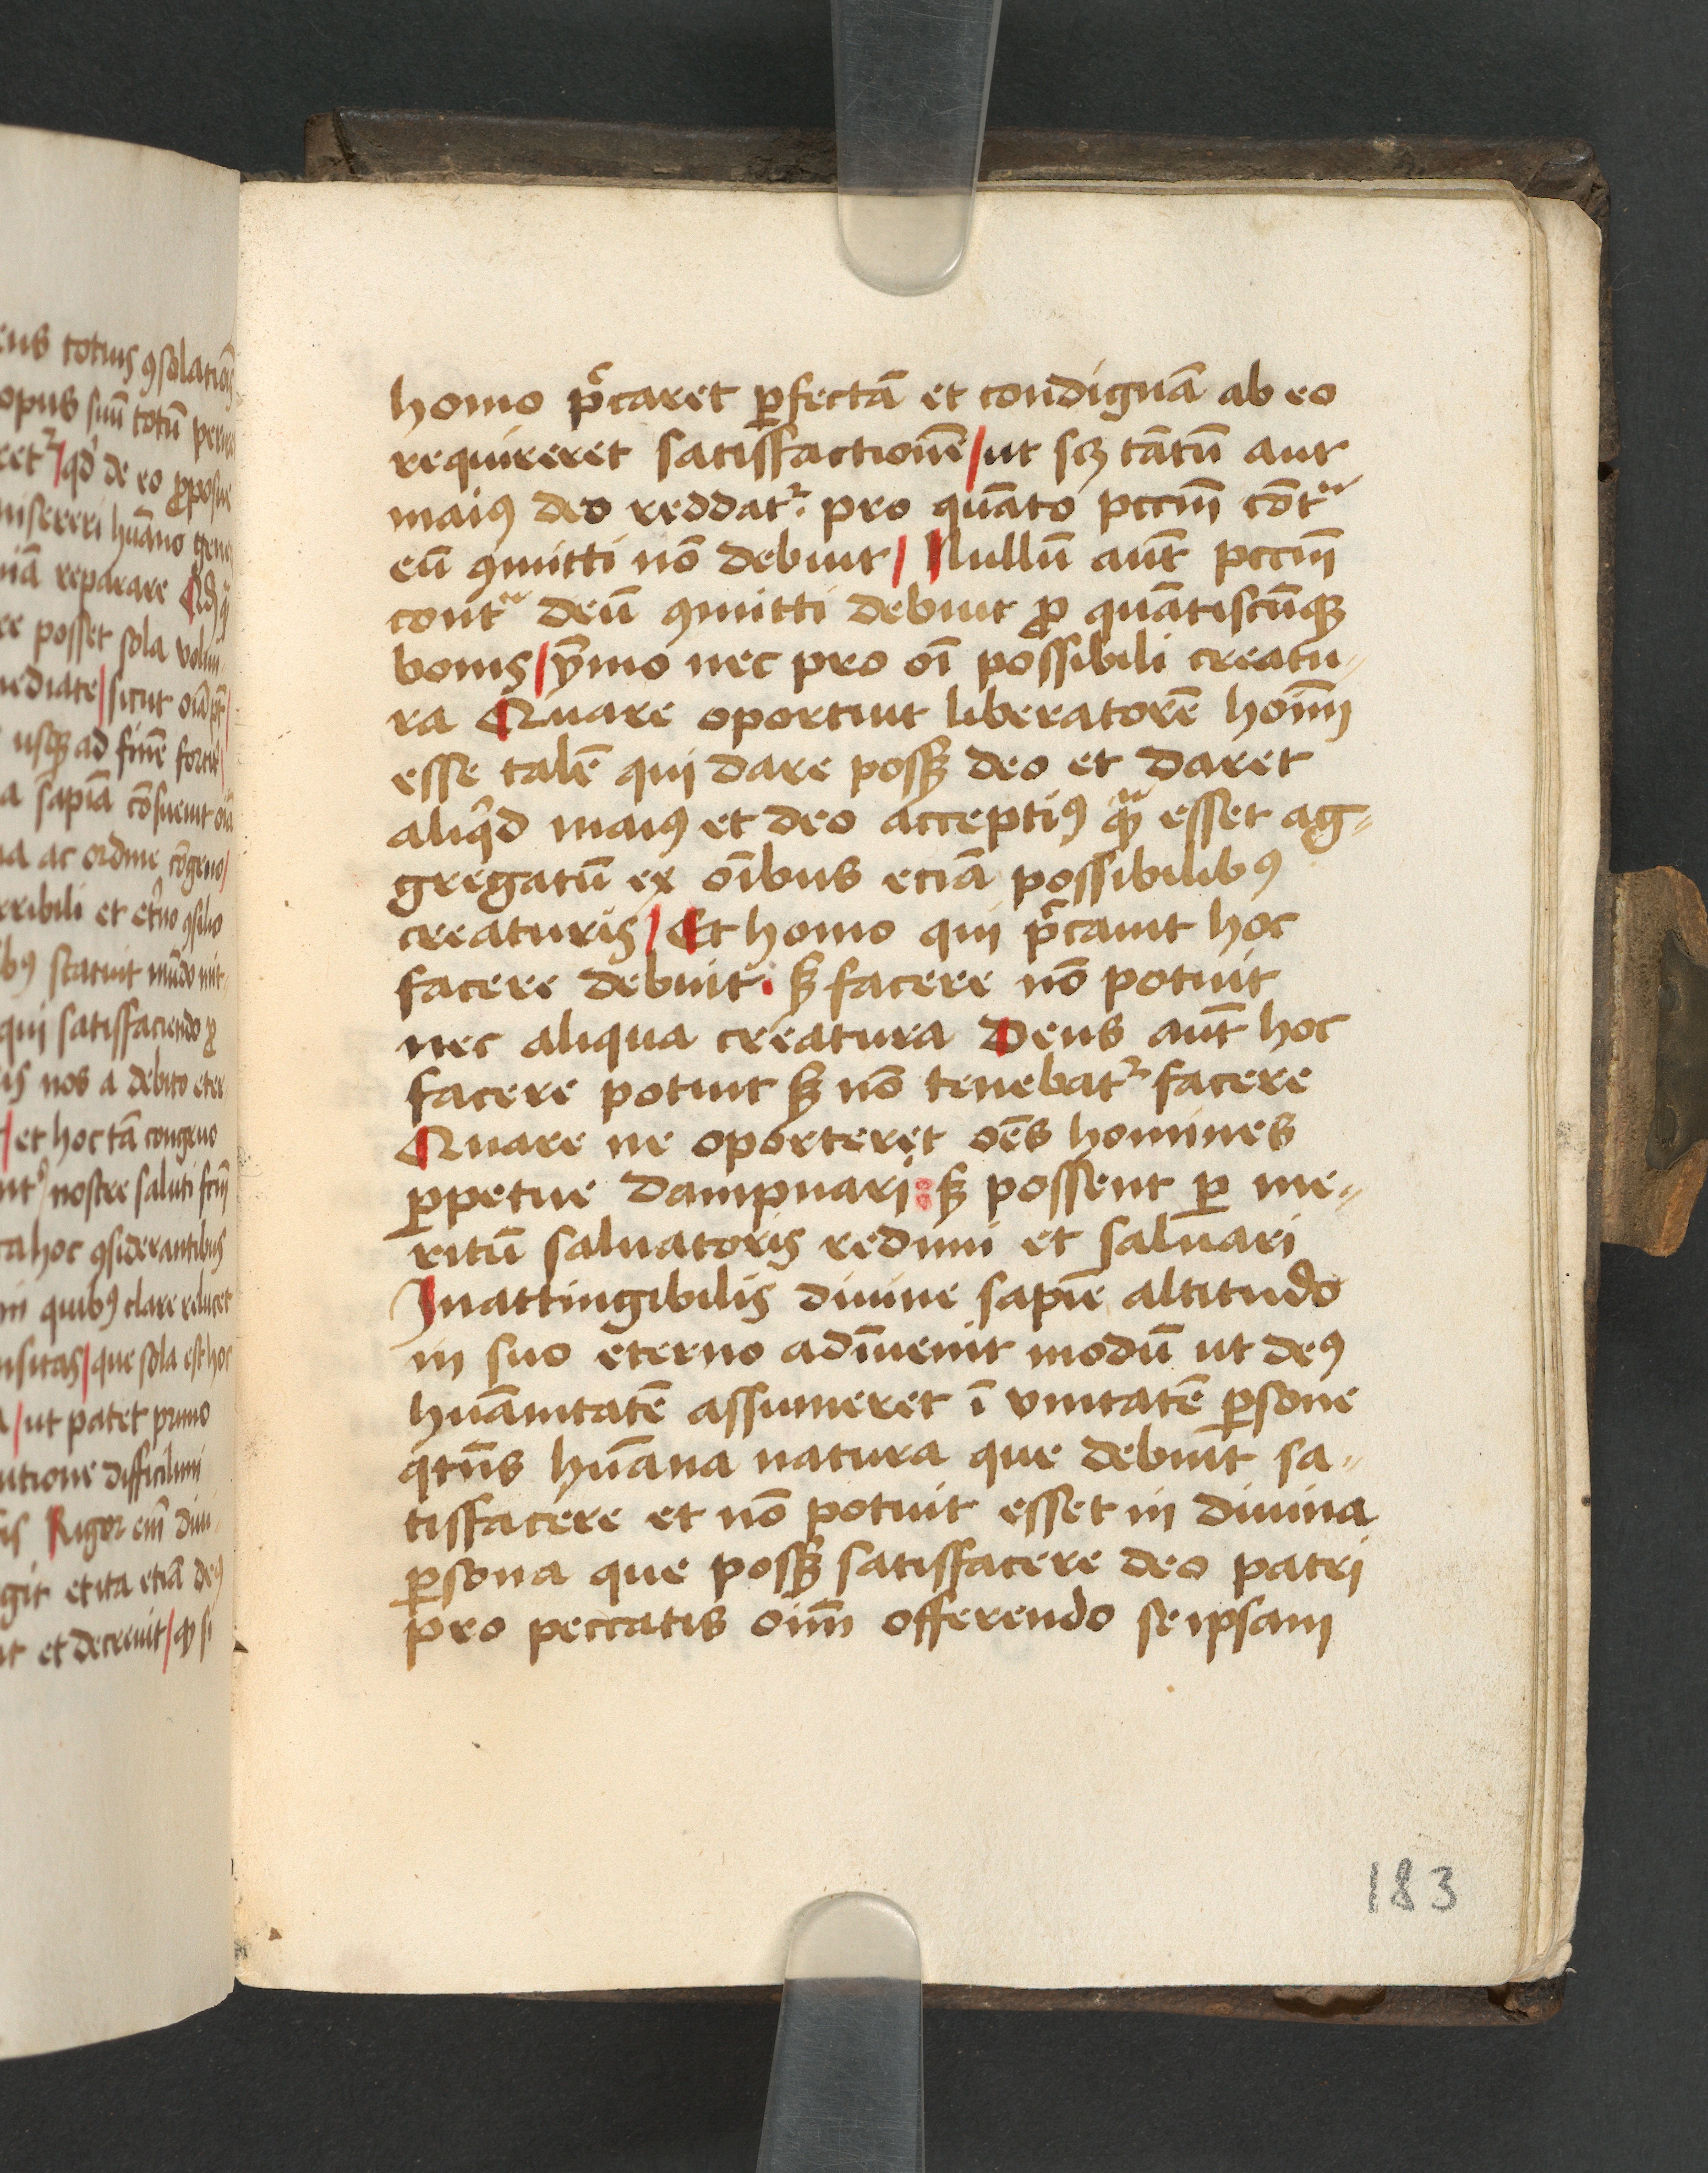 homo p̄caret ꝑfectā et condignā ab eo
requireret satisfactionē/ut scꝫ tātū aut
maiꝰ deo reddatᷣ pro quāto pccm̄ cōtᷓ
eū ꝯmitti nō debuit/ Nullū aūt pccm̄
contᷓ deū ꝯmitti debuit ꝓ quātiscūqꝫ
bonis/ȳmo nec pro oī possibili creatu⸗
ra Quare oportuit liberatorē hoīm
esse talē qui dare possꝫ deo et daret
aliqͥd maiꝰ et deo acceptiꝰ qᷓꝫ esset ag⸗
gregatū ex oībus eciā possibilibꝰ
creaturis/ Et homo qui p̄cauit hoc
facere debuit. sꝫ facere nō potuit
nec aliqua creatura Deus aūt hoc
facere potuit sꝫ nō tenebatᷣ facere
Quare ne oporteret oēs homines
ꝑpetue dampnari: sꝫ possent ꝑ me⸗
ritū saluatoris redimi et saluari
Inattingibilis diuine sapīe altitudo
in suo eterno adīuenit modū ut deꝰ
huānitatē assumeret ī vnitatē ꝑsone
qtn̄s huāna natura que debuit sa⸗
tisfacere et nō potuit esset in diuina
ꝑsona que possꝫ satisfacere deo patri
pro peccatis oīm offerendo seipsam
183